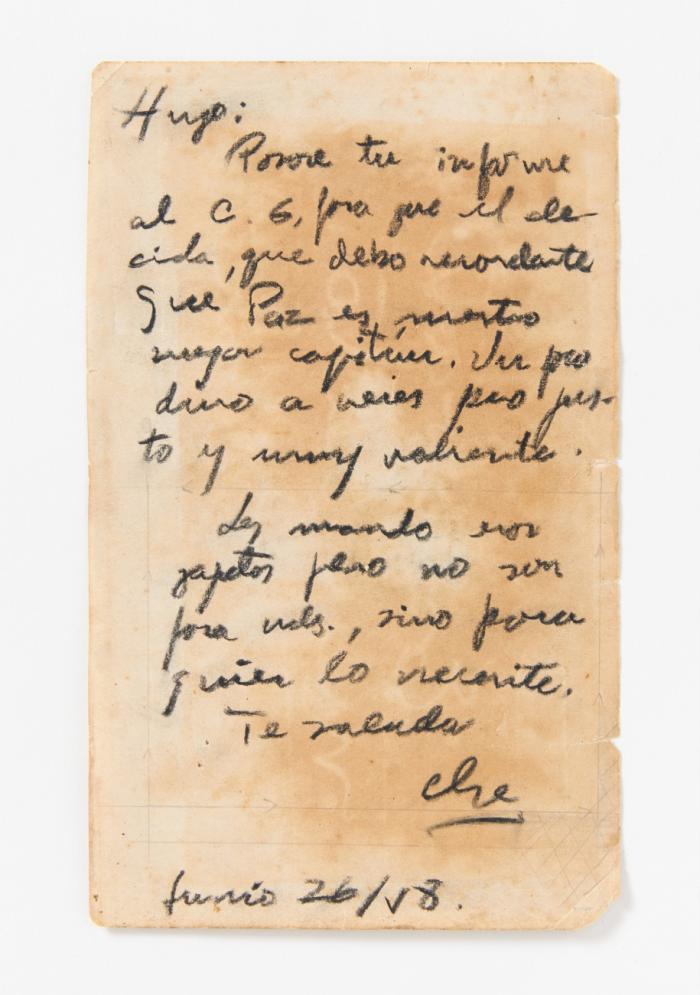 Hugo:
Pasaré tu informe
al C. G, para que el de-
cida, que debo recordarte
que Paz es nuestro
mejor capitán. Un po
duro a veces pero jus-
to y muy valiente.
Les mando esos
zapatos pero no son
para uds., sino para
quien lo necesite.
Te saluda
Che
Junio 26/58.